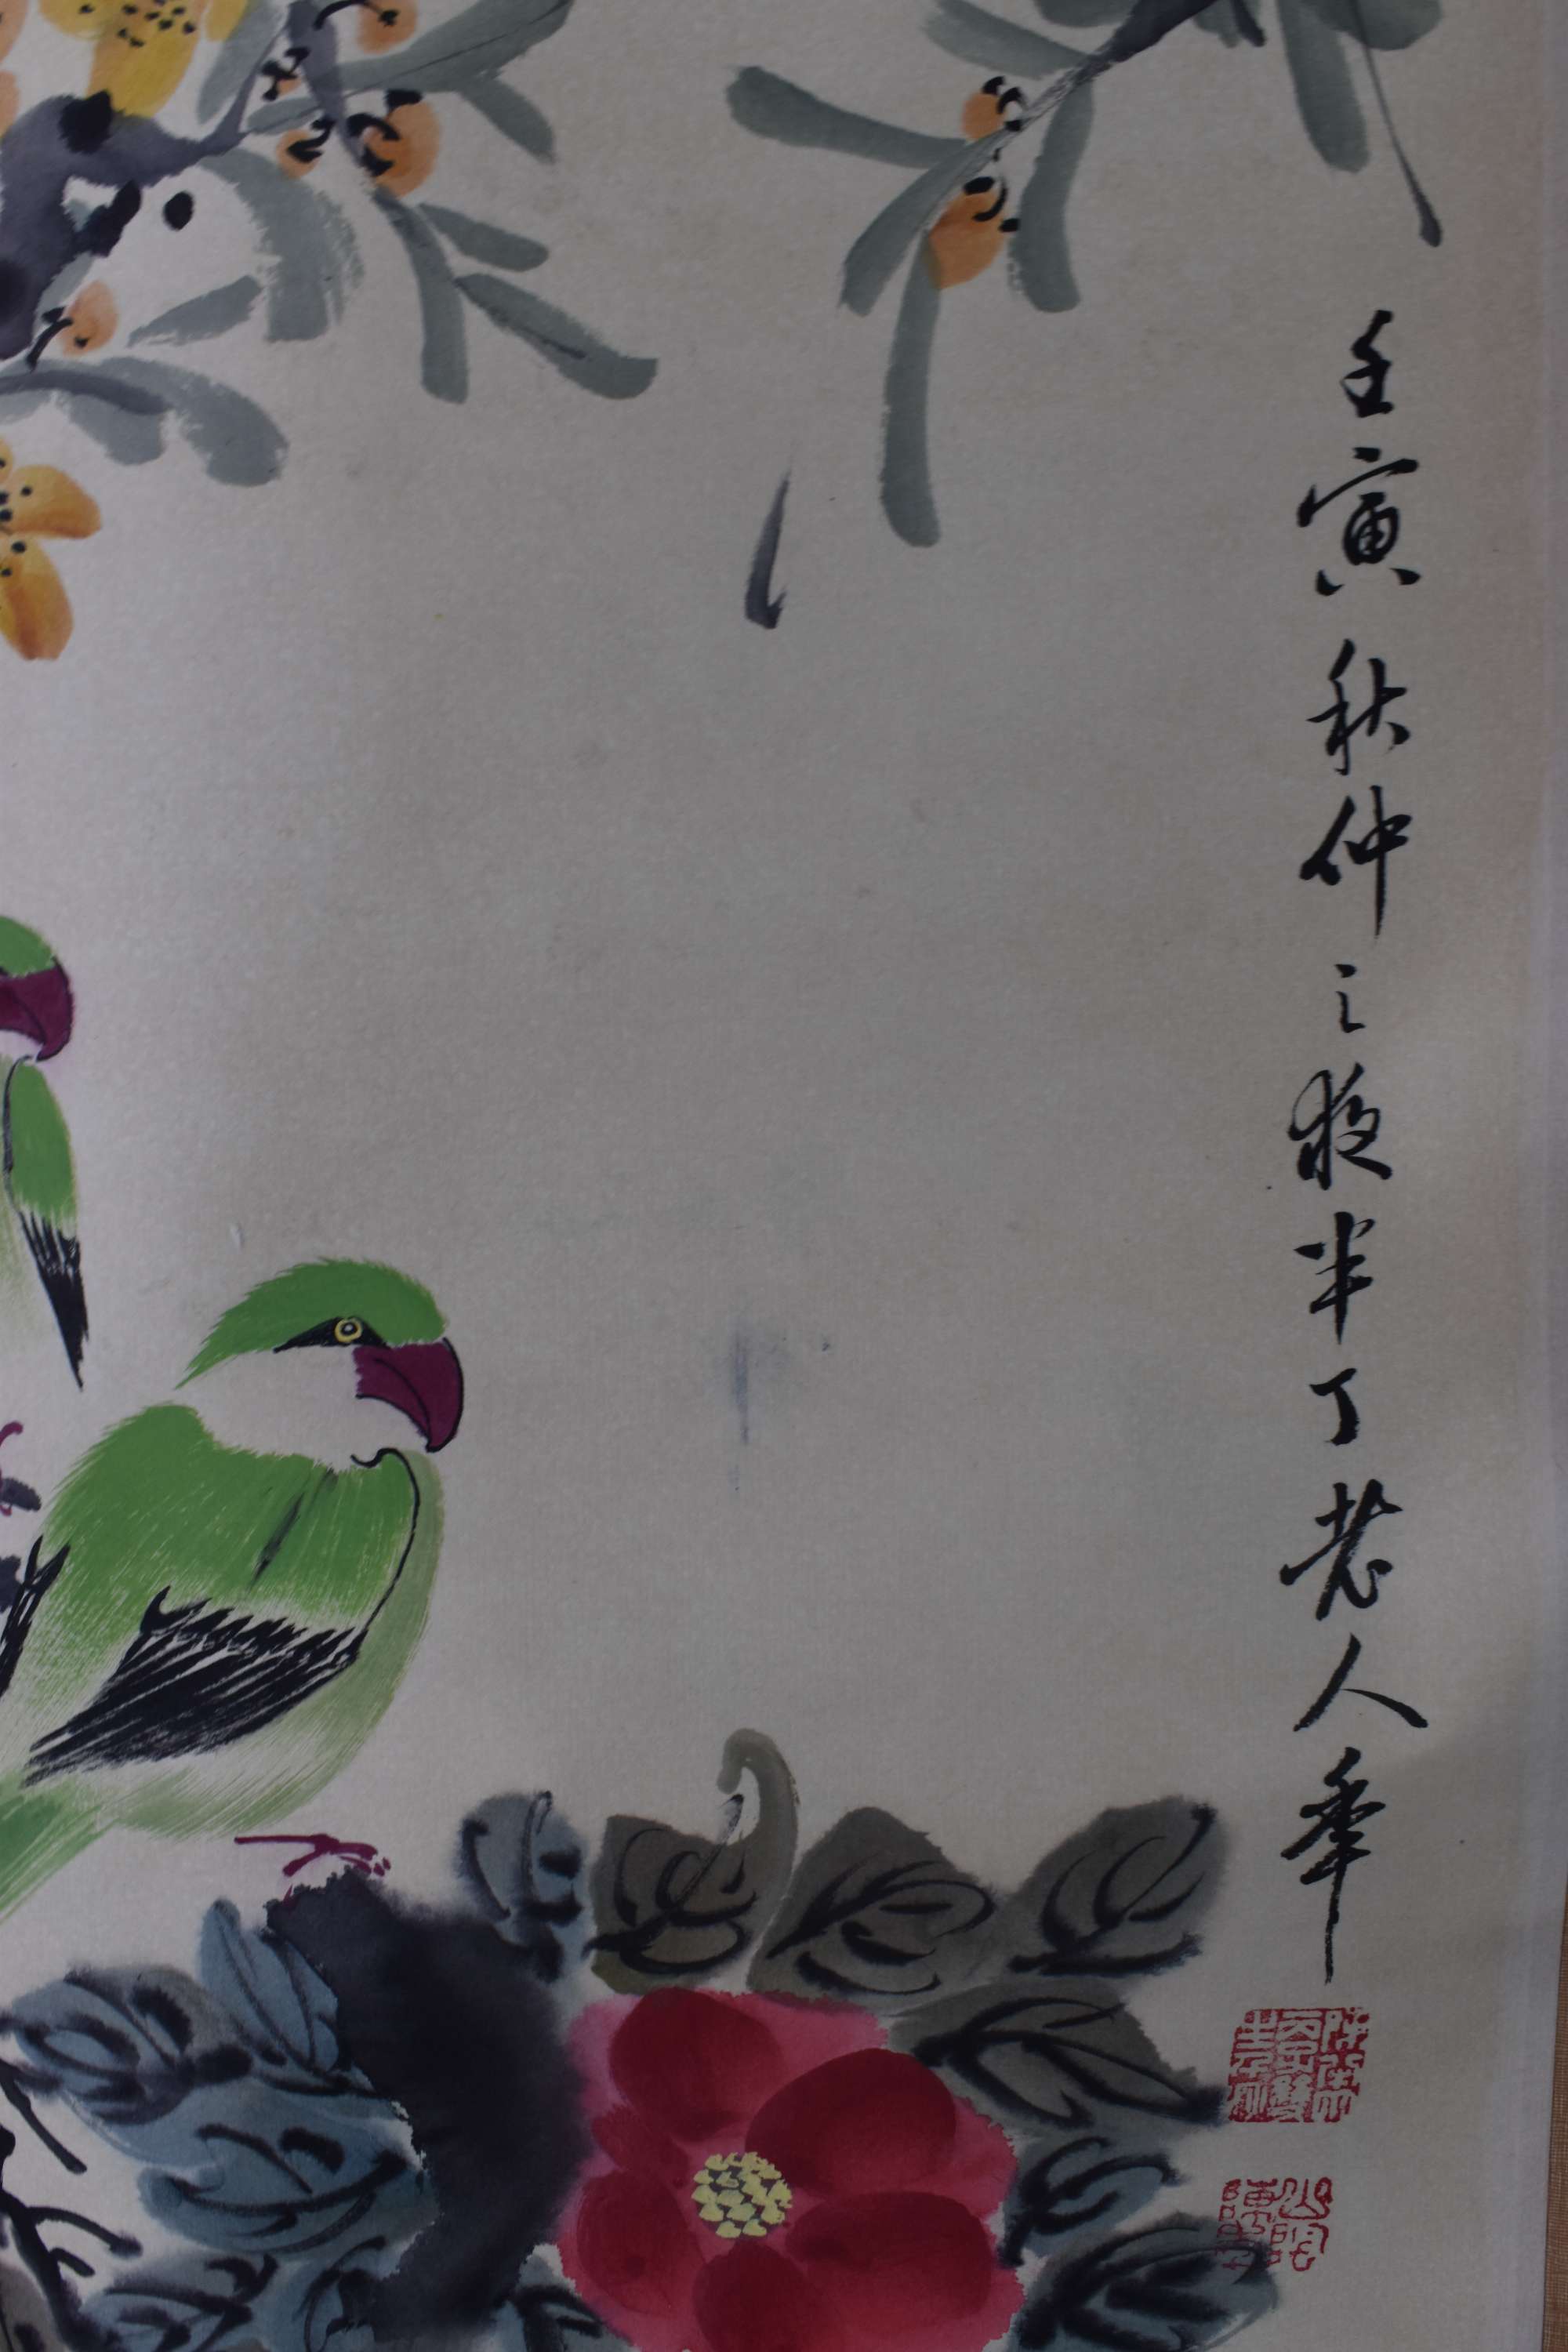 壬寅秋仲之夜半丁老人年